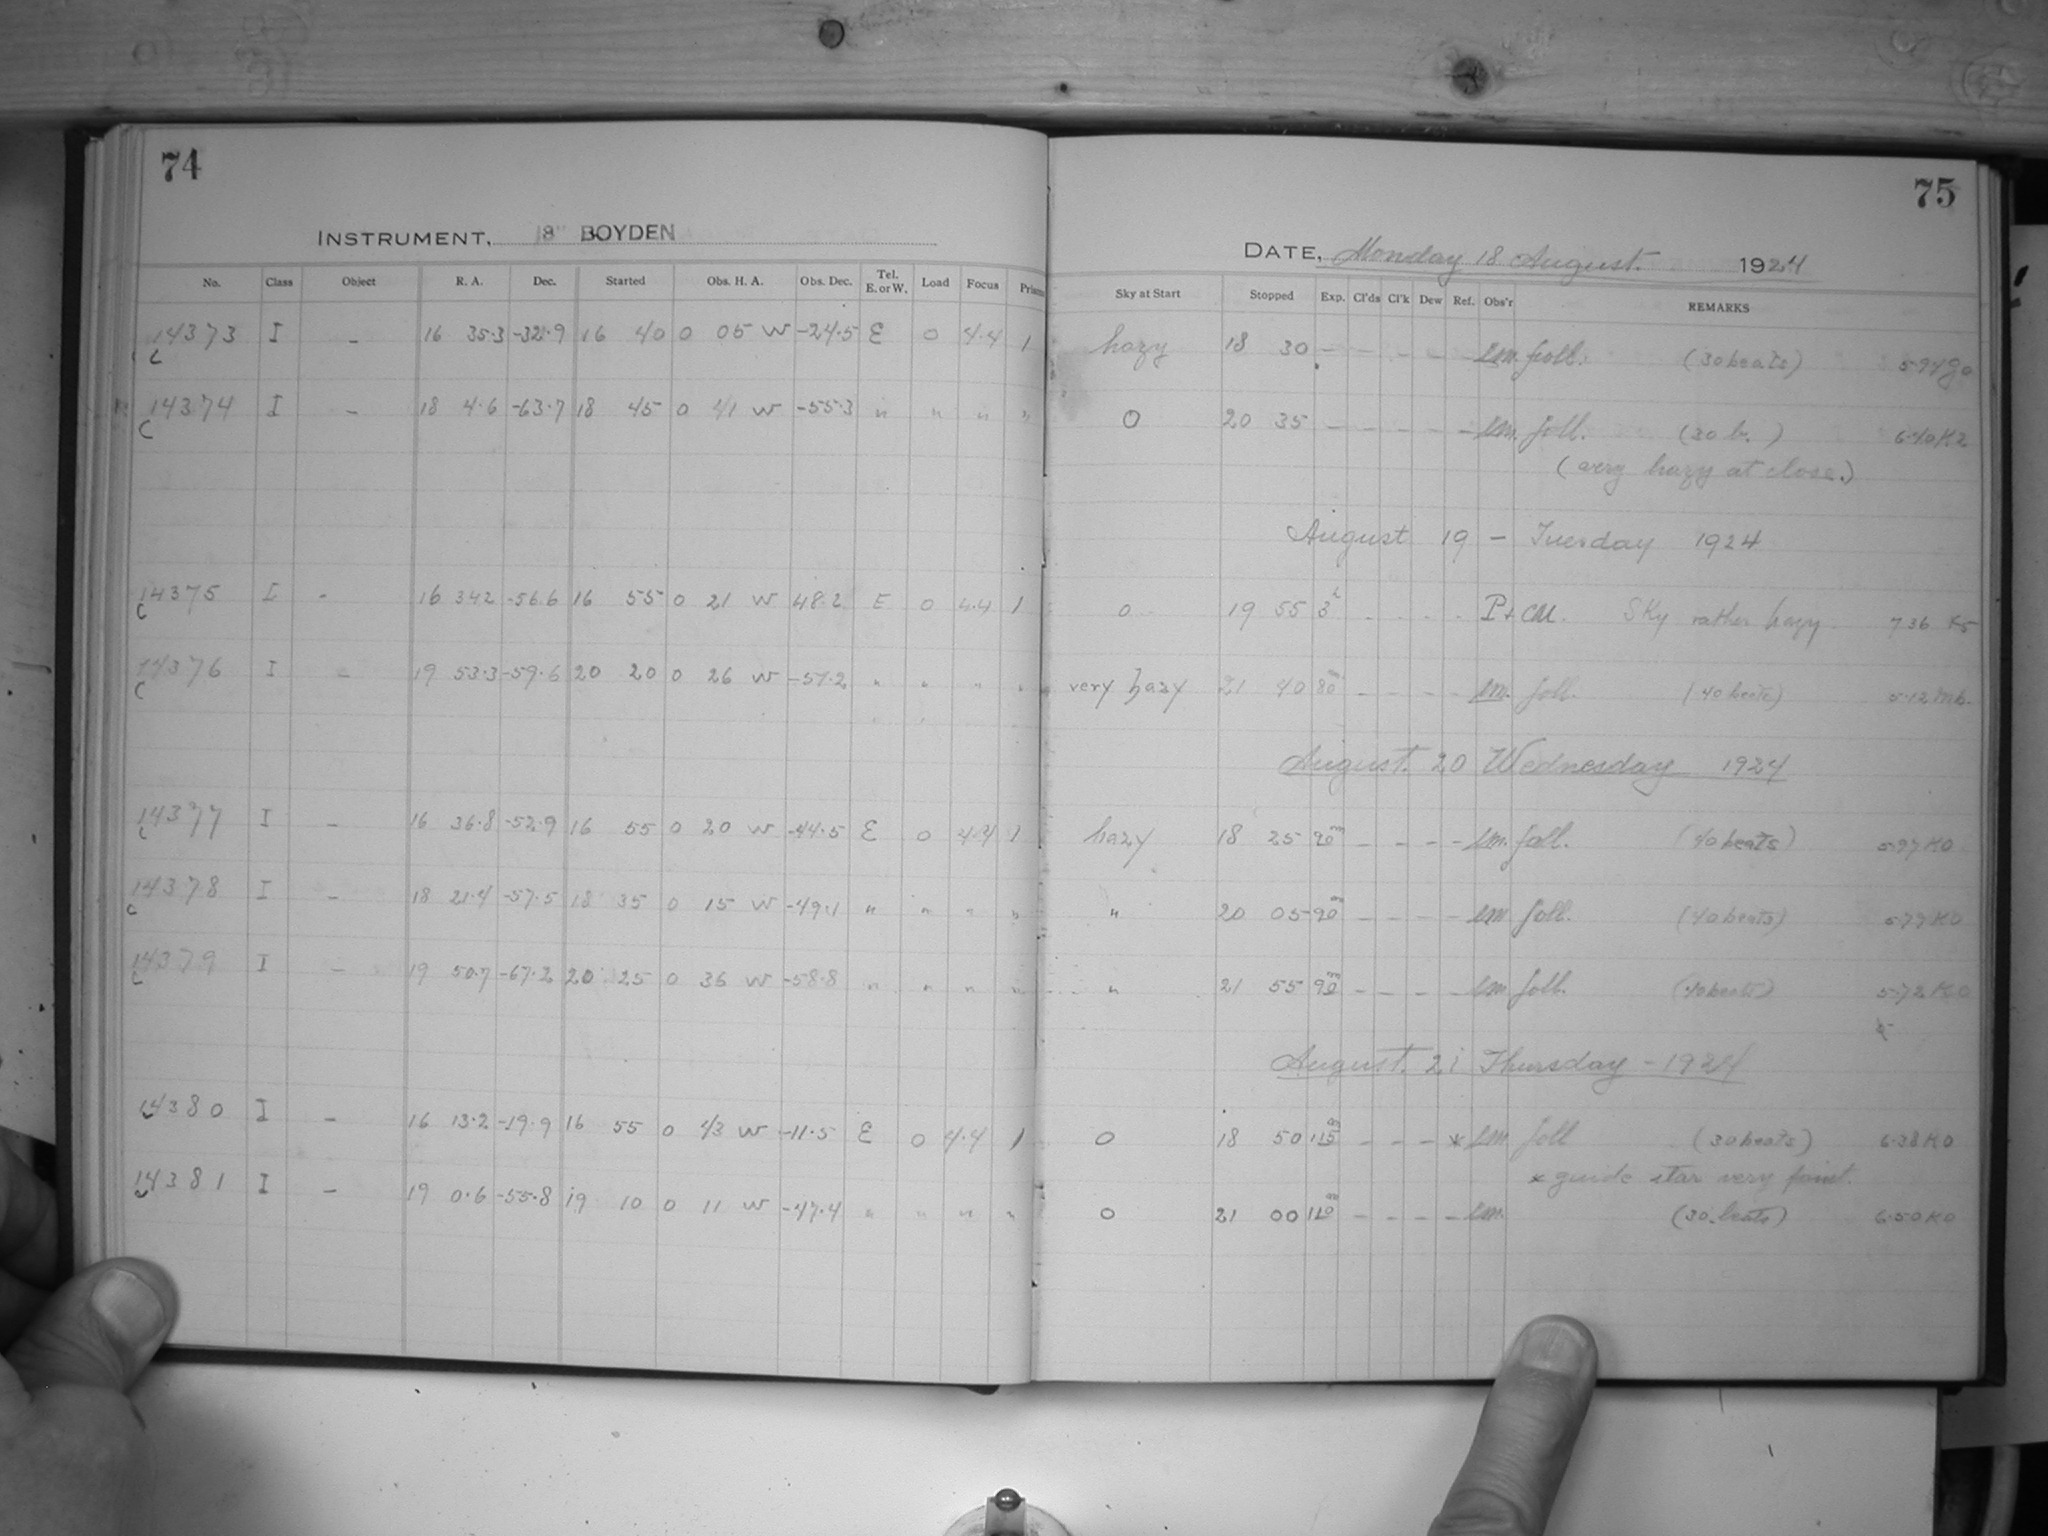 74
INSTRUMENT, 8" BOYDEN
No. Class Object R. A. Dec. Started Obs. H. A. Obs. Dec. Tel. E. or W. Load Focus Prisms
14373 I - 16 35.3 -32.9 16 40 0 05 W -24.5 E 0 4.4 1
14374 I - 18 4.6 -63.7 18 45 0 41 W -55.3 " " " "
14375 I - 16 34.2 -56.6 16 55 0 21 W 48.2 E 0 4.4 1
14376 I - 19 53.3 -59.6 20 20 0 26 W -51.2 " " " "
14377 I - 16 36.8 -52.9 16 55 0 20 W -44.5 E 0 4.4 1
14378 I - 18 21.4 -57.5 18 35 0 15 W -49.1 " " " "
14379 I - 19 50.7 -67.2 20 25 0 36 W -58.8 " " " "
14380 I - 16 13.2 -19.9 16 55 0 43 W -11.5 E 0 4.4 1
14381 I - 19 0.6 -55.8 19 10 0 11 W -47.4 " " " "
75
DATE, Monday 18 August. 1924
Sky at Start Stopped Exp. Cl'ds Cl'k Dew Ref. Obs'r REMARKS
hazy 18 30 - - - - - Em. foll. (30 beats) 5.94 G0
0 20 35 - - - - - Em. foll. (30 b.) 6.40 K2
(very hazy at close.)
August 19 - Tuesday 1924
0 19 55 3h - - - - P + CM. Sky rather hazy. 7.36 K5
very hazy 21 40 80m - - - - Em. foll. (40 beats) 5.12 Mb.
August. 20 Wednesday 1924
hazy 18 25 90m - - - - Em. foll. (40 beats) 5.97 K0
" 20 05 90m - - - - Em foll. (40 beats) 5.77 K0
" 21 55 90m - - - - Em foll. (40 beats) 5.72 K0
August. 21 Thursday - 1924
0 18 50 115m - - - * Em foll (30 beats) 6.38 K0
* guide star very faint.
0 21 00 110m - - - - Em. (30 beats) 6.50 K0